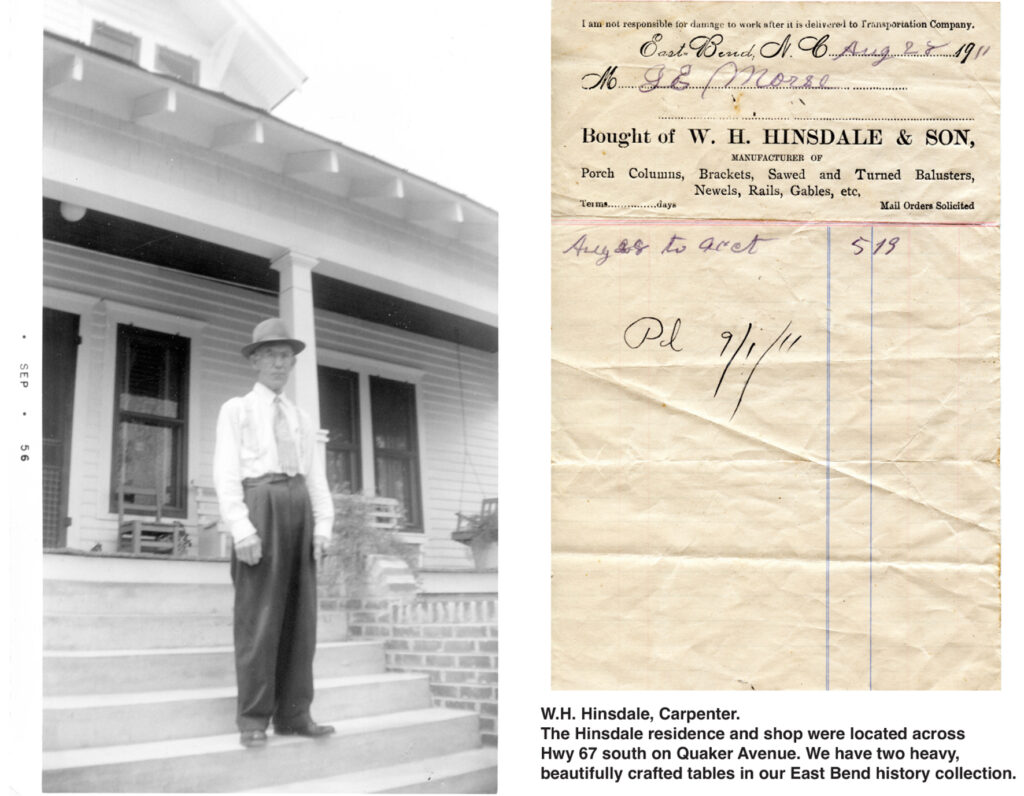 • SEP • 56
I am not responsible for damage to work after it is delivered to Transportation Company.
East Bend, N. C. Aug 28 1911
M J E Morse
Bought of W. H. HINSDALE & SON,
MANUFACTURER OF
Porch Columns, Brackets, Sawed and Turned Balusters,
Newels, Rails, Gables, etc,
Terms..............days Mail Orders Solicited
Aug 28 to acct 5 19
Pd 9/1/11
W.H. Hinsdale, Carpenter.
The Hinsdale residence and shop were located across
Hwy 67 south on Quaker Avenue. We have two heavy,
beautifully crafted tables in our East Bend history collection.